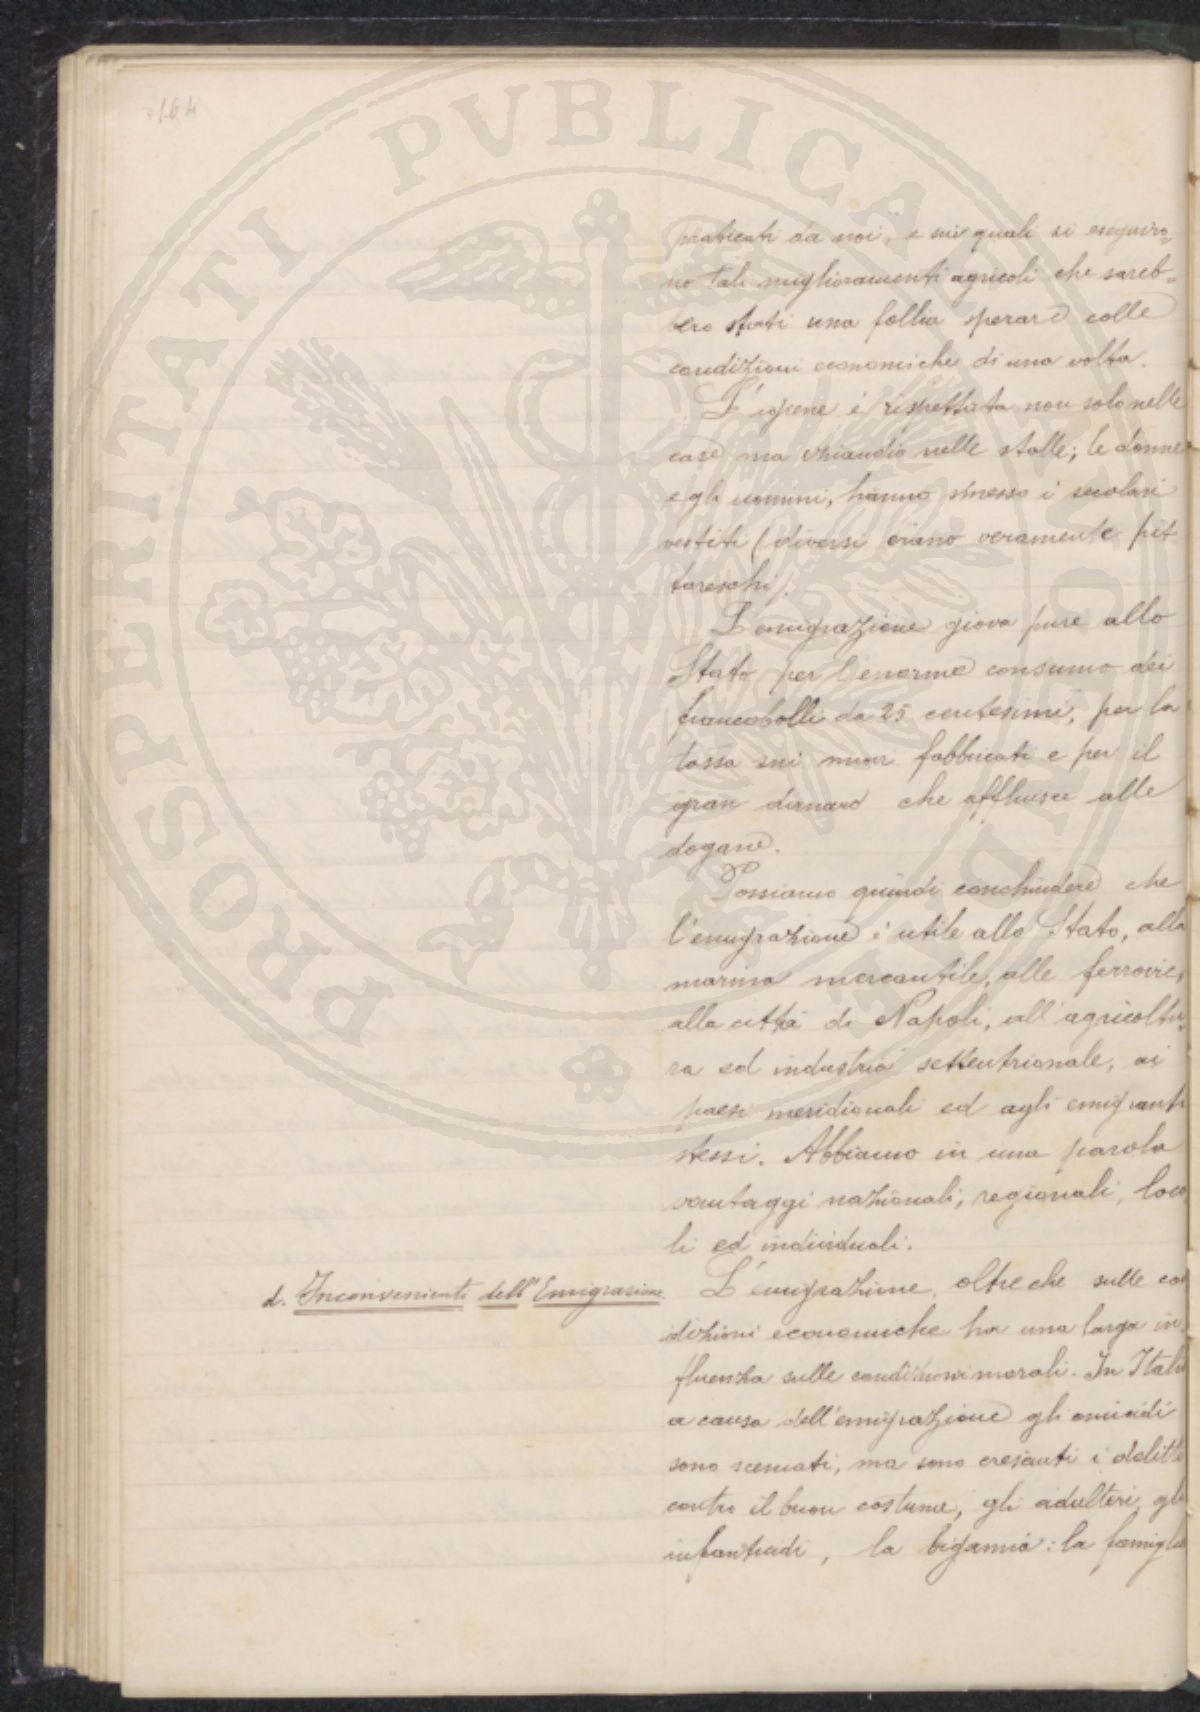 praticati da noi, e sui quali si eseguiro=
no tali miglioramenti agricoli che sareb=
bero stati una follia sperare colle
condizioni economiche di una volta.
L'igiene è rispettata non solo nelle
case ma eziandio nelle stalle; le donne
e gli uomini, hanno smesso i secolari
vestiti (diversi erano veramente pit
toreschi).
L'emigrazione giova pure allo
Stato per l'enorme consumo dei
francobolli da 25 centesimi, per la
tassa sui nuovi fabbricati e per il
gran denaro che affluisce alle
dogane.
Possiamo quindi conchiudere che
l'emigrazione è utile allo Stato, alla
marina mercantile, alle ferrovie,
alla città di Napoli, all'agricoltu=
ra ed industria settentrionale, ai
paesi meridionali ed agli emigranti
stessi. Abbiamo in una parola
vantaggi nazionali, regionali, loca
li ed individuali.
d. Inconvenienti dell'Emigrazione
L'emigrazione, oltre che sulle con
dizioni economiche ha una larga in
fluenza sulle condizioni morali. In Italia
a causa dell'emigrazione gli omicidi
sono scemati, ma sono cresciuti i delitti
contro il buon costume, gli adulteri, gli
infanticidi, la bigamia: la famiglia
PROSPERITATI PUBLICAE